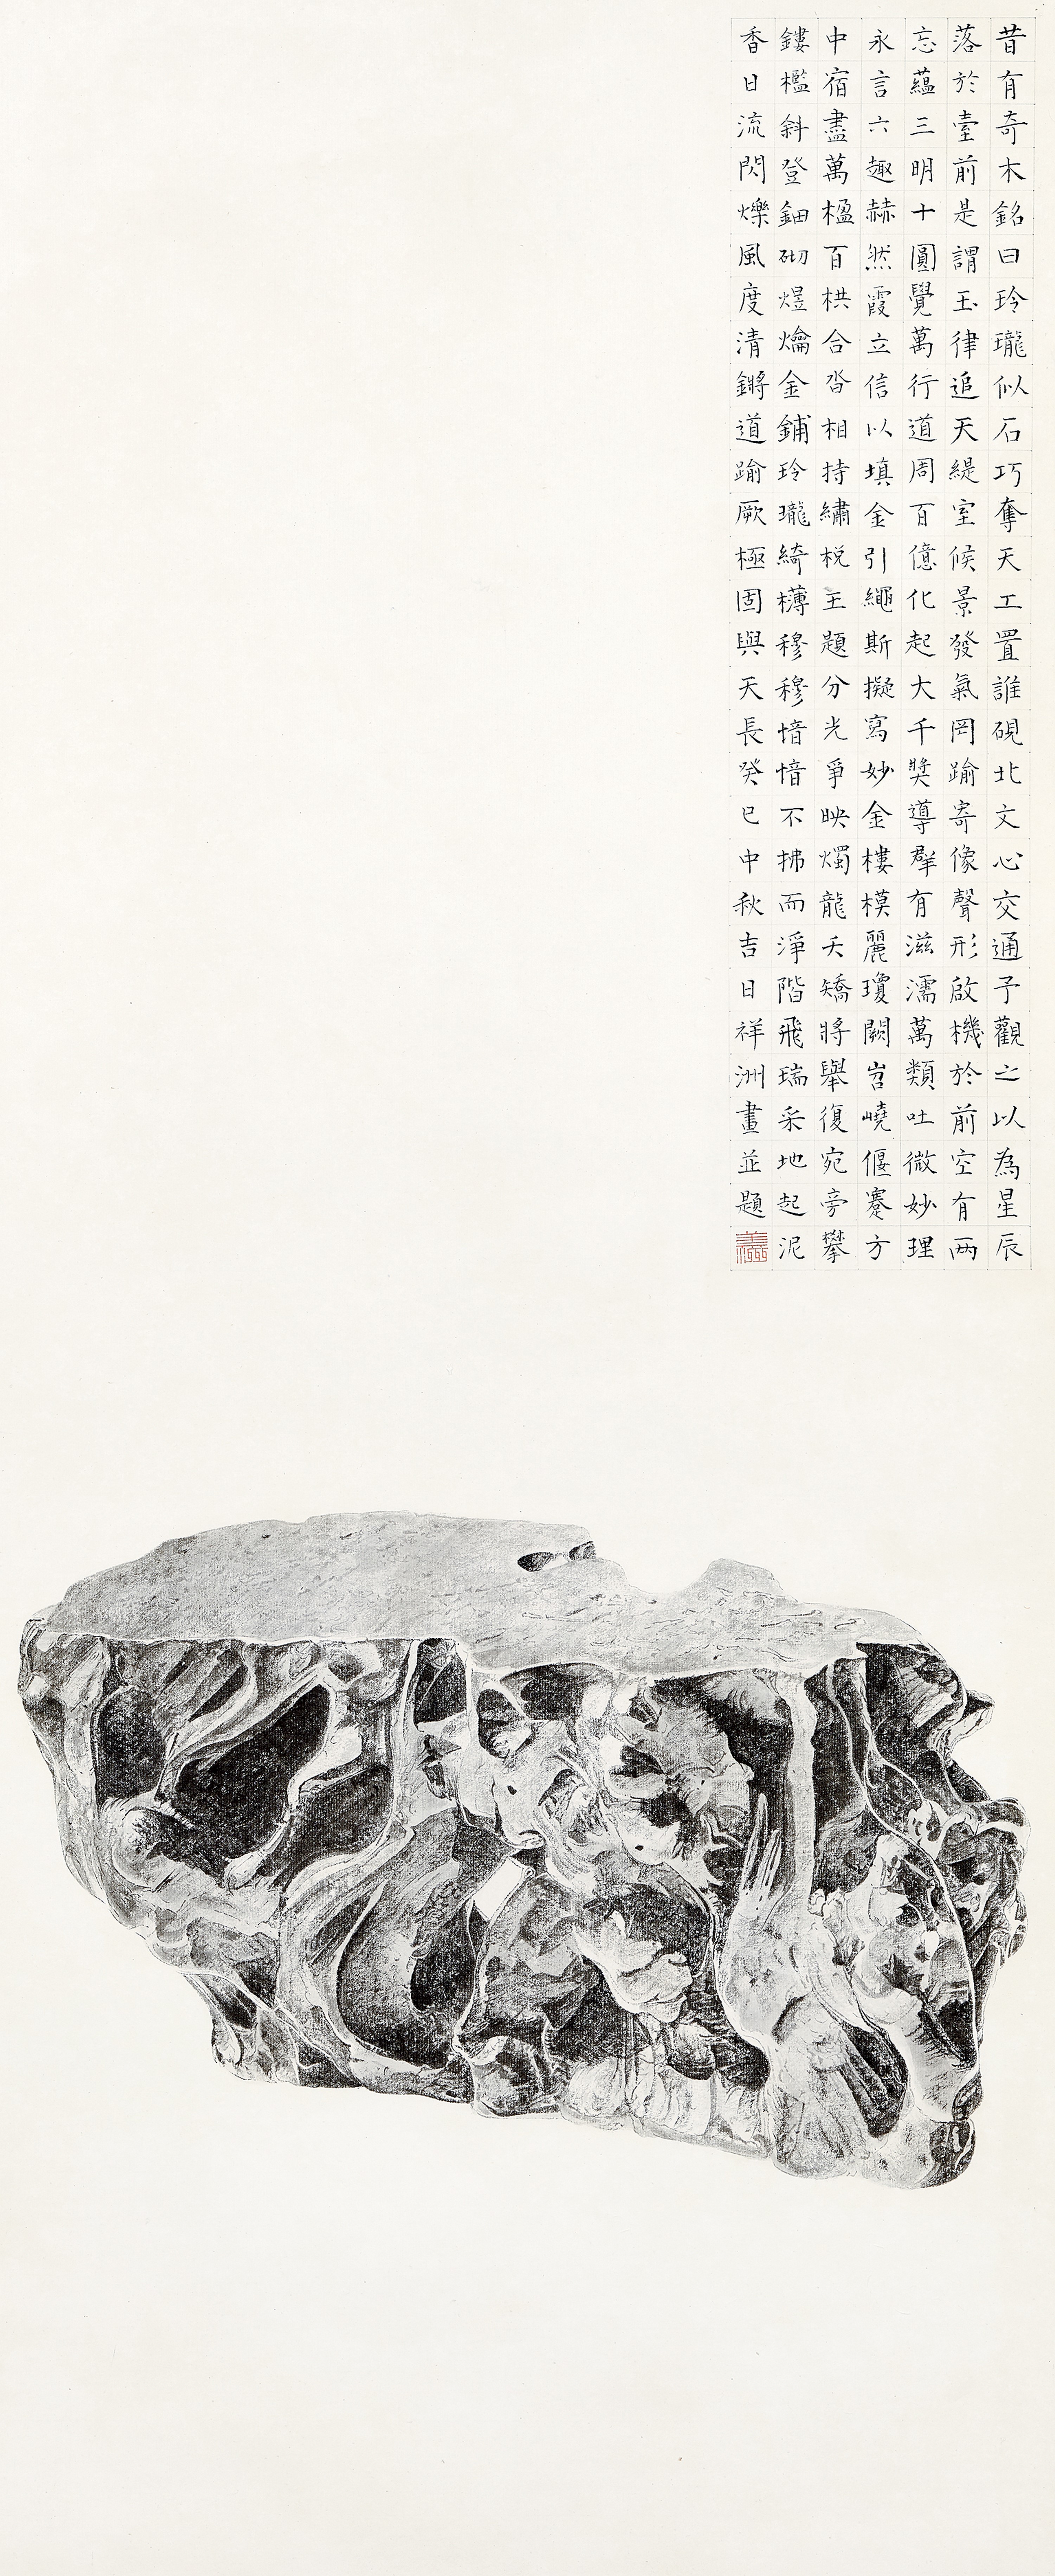 昔有奇木銘曰玲瓏似石巧奪天工置誰硯北文心交通予觀之以為星辰
落於臺前是謂玉律追天緹室候景發氣罔踰寄像聲形啟機於前空有兩
忘蘊三明十圓覺萬行道周百億化起大千奬導群有滋濡萬類吐微妙理
永言六趣赫然霞立信以填金引繩斯擬寫妙金樓模麗瓊闕岧嶢偃蹇方
中宿盡萬楹百栱合沓相持繡梲玉題分光爭映燭龍夭矯將舉復宛旁攀
鏤檻斜登鈿砌煜爚金鋪玲瓏綺欂穆穆愔愔不拂而淨階飛瑞采地起泥
香日流閃爍風度清鏘道踰厥極固與天長癸巳中秋吉日祥洲畫並題